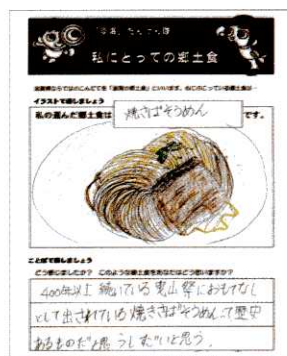 私にとっての郷土食
イラストで表しましょう
私の選んだ郷土食は 焼きさばそうめん です。
ことばで表しましょう
どう感じましたか？ このような郷土食をあなたはどう思いますか？
400年以上続いている曳山祭におもてなし
として出されている焼きさばそうめんって歴史
あるものだと思
いと思う。